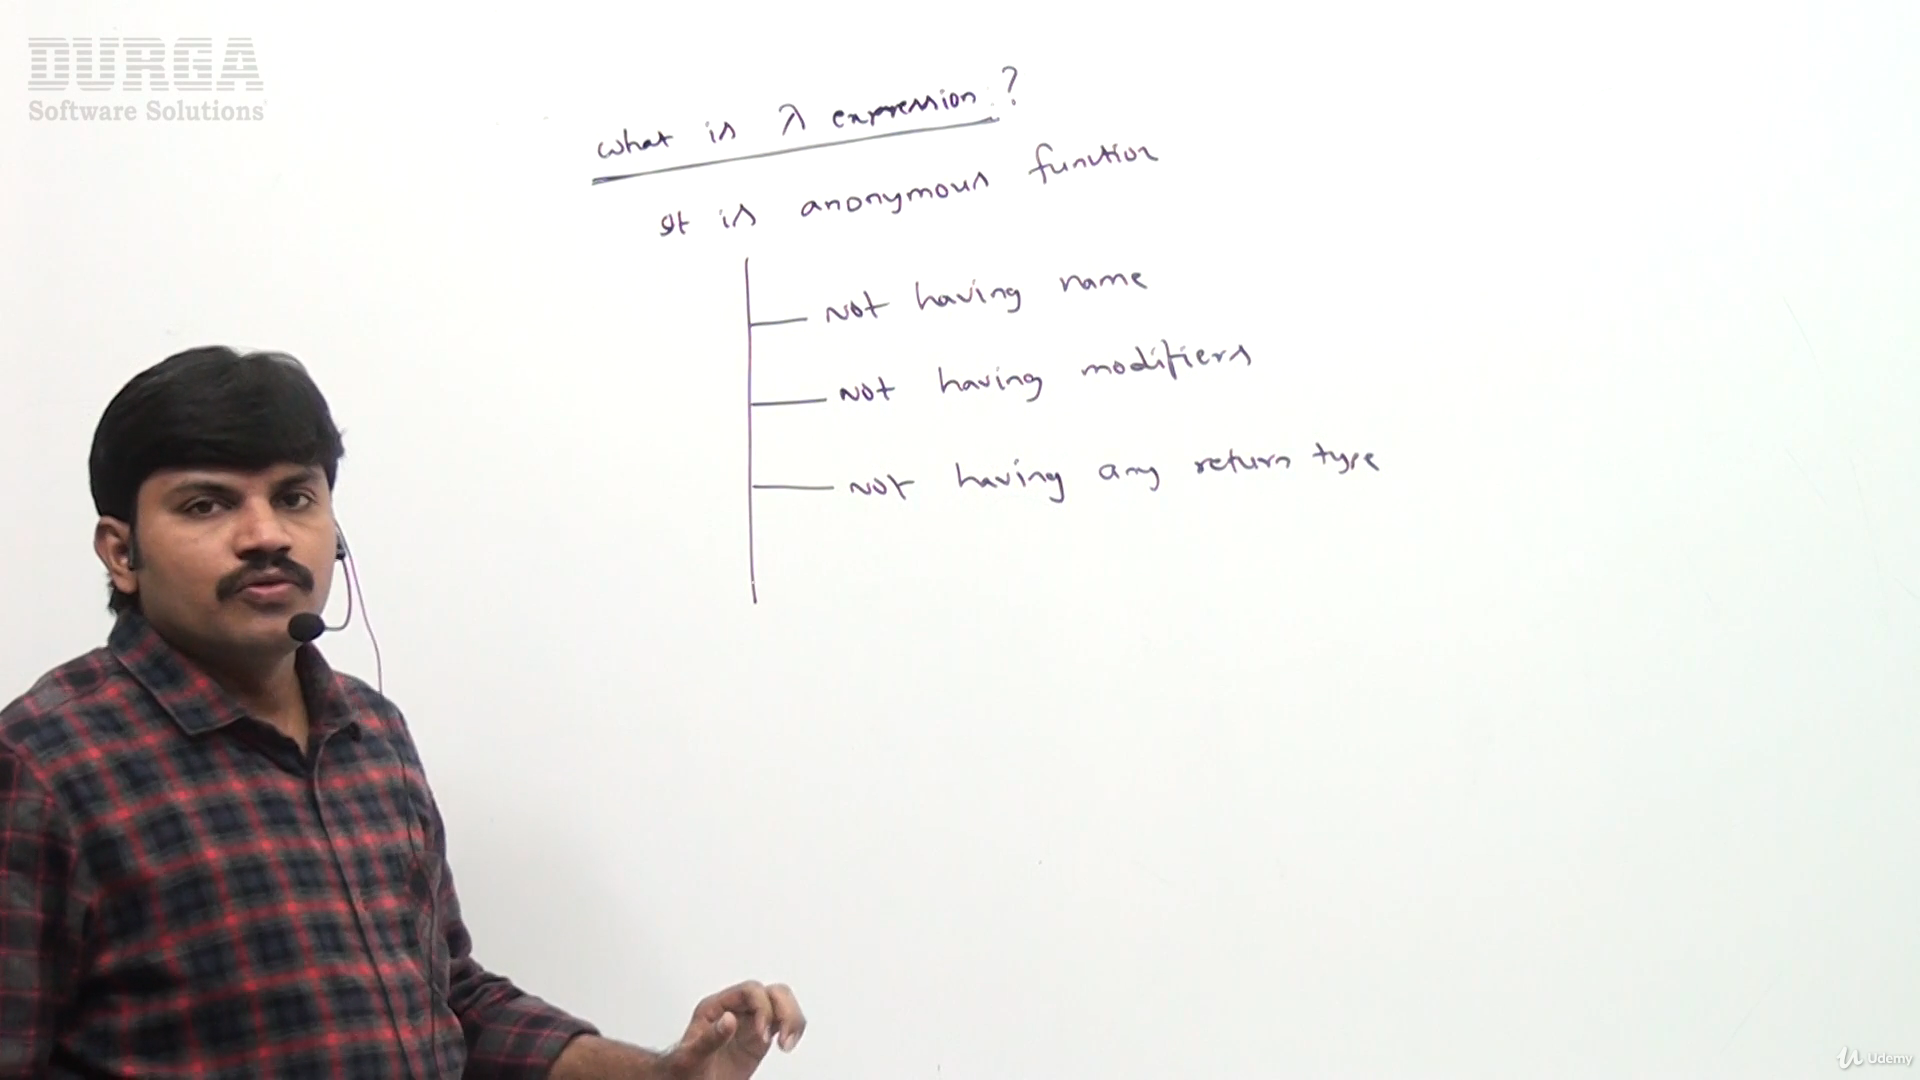 DURGA
Software Solutions
what is λ expression ?
It is anonymous function
not having name
not having modifiers
not having any return type
Udemy